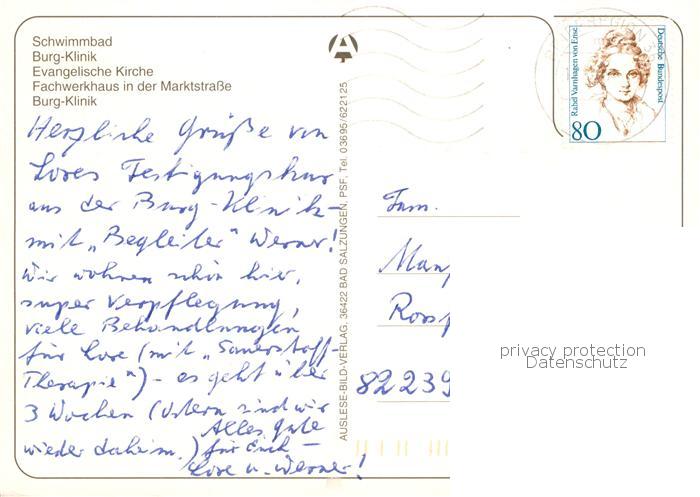 Schwimmbad
Burg-Klinik
Evangelische Kirche
Fachwerkhaus in der Marktstraße
Burg-Klinik
Herzliche Grüße von
Lores Festigungskur
aus der Burg-Klinik-
mit „Begleiter" Werner!
Wir wohnen schön hier,
super Verpflegung,
viele Behandlungen
für Lore (mit „Sauerstoff-
Therapie") - es geht über
3 Wochen (Ostern sind wir
wieder daheim.)
Alles Gute
für Euch -
Lore u. Werner!
AUSLESE-BILD-VERLAG, 36422 BAD SALZUNGEN, PSF, Tel. 03695/622125
Rahel Varnhagen von Ense
Deutsche Bundespost
80
Fam.
82239
privacy protection
Datenschutz